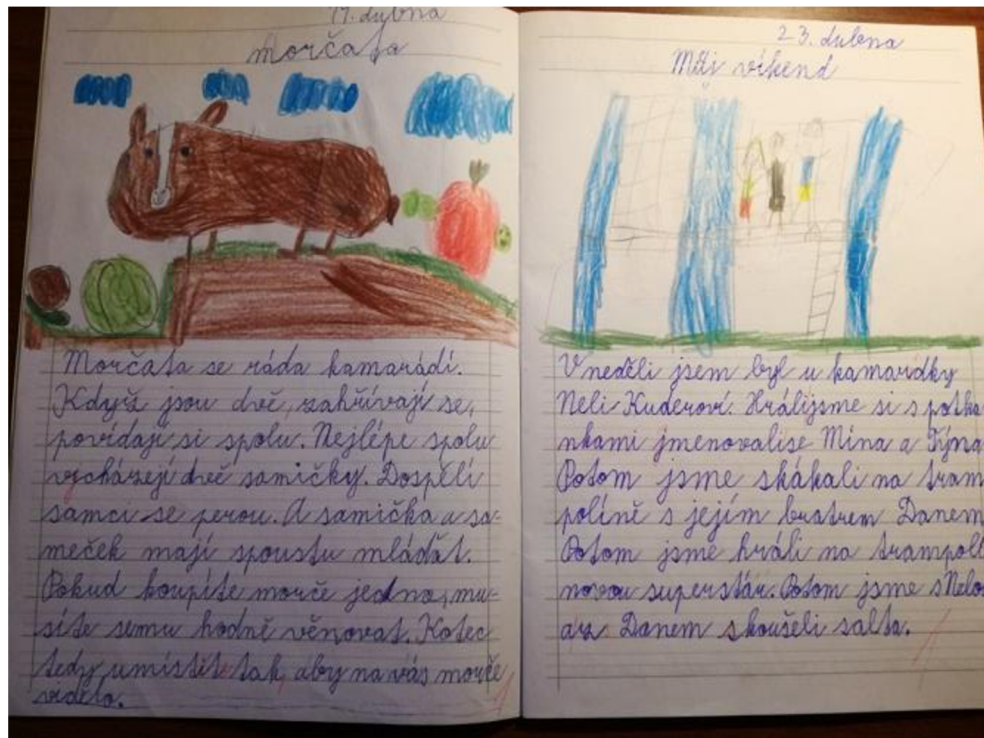 17. dubna
morčata
Morčata se ráda kamarádí.
Když jsou dvě, zahřívají se,
povídají si spolu. Nejlépe spolu
vycházejí dvě samičky. Dospělí
samci se perou. A samička a sa-
meček mají spoustu mláďat.
Pokud koupíte morče jedno, mu-
síte semu hodně věnovat. Kotec
tedy umístěte tak, aby na vás morče
vidělo.
23. dubna
Můj víkend
V neděli jsem byl u kamarádky
Neli Kuderoví. Hrálijsme si s potka-
nkami jmenovalise Mína a Týna
Potom jsme skákali na tram
políně s jejím bratrem Danem
Potom jsme hráli na trampolí
novou superstár. Potom jsme s Nelo
a z Danem skoušeli salta.